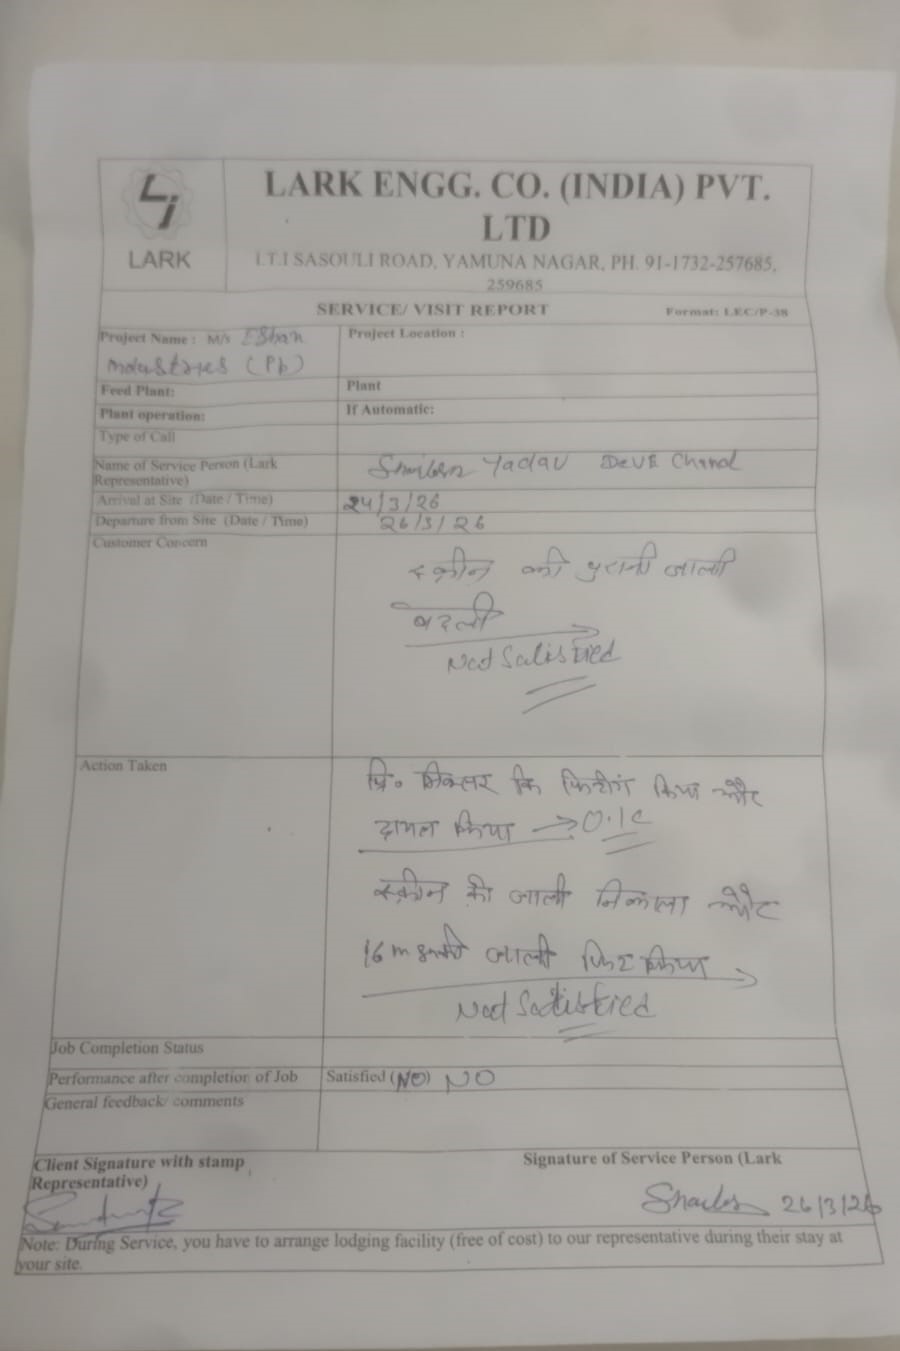 LARK ENGG. CO. (INDIA) PVT.
LTD
LARK
I.T.I SASOULI ROAD, YAMUNA NAGAR, PH. 91-1732-257685,
259685
SERVICE/ VISIT REPORT Format: LEC/P-38
Project Name : M/s Eshan
Industries (Pb)
Project Location :
Feed Plant: Plant
Plant operation: If Automatic:
Type of Call
Name of Service Person (Lark
Representative)
Yadav Chand
Arrival at Site (Date / Time) 24/3/26
Departure from Site (Date / Time) 26/3/26
Customer Concern
स्क्रीन की पुरानी जाली
बदली
Not Satisfied
Action Taken
प्रि० मिक्सर कि फिटींग किया और
ट्रायल किया → O.K
स्क्रीन की जाली निकाला और
16 m जाली फिट किया
Not Satisfied
Job Completion Status
Performance after completion of Job Satisfied (NO) NO
General feedback/ comments
Client Signature with stamp
Representative)
Signature of Service Person (Lark
26/3/26
Note: During Service, you have to arrange lodging facility (free of cost) to our representative during their stay at
your site.